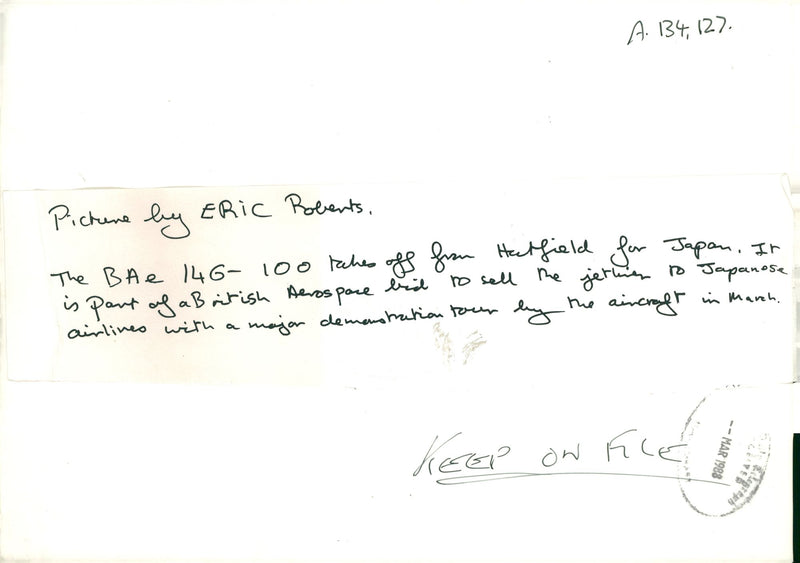 A. 134,127.
Picture by ERIC Roberts.
The BAe 146-100 takes off from Hatfield for Japan. It
is part of a British Aerospace bid to sell the jetliner to Japanese
airlines with a major demonstration tour by the aircraft in March.
KEEP ON FILE
-- MAR 1988